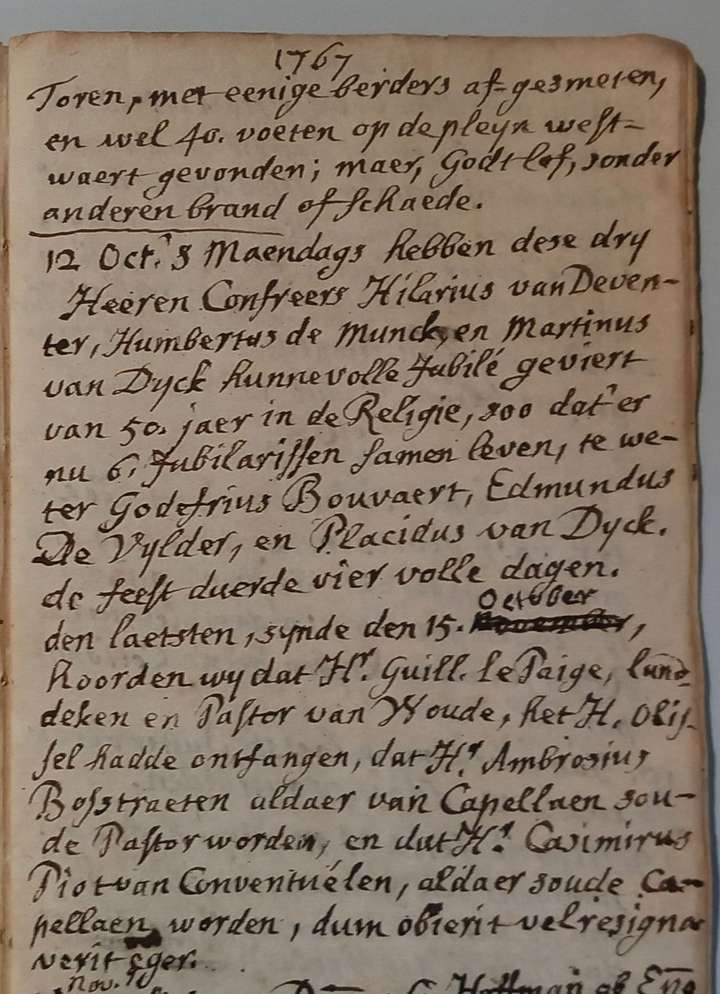 1767
Toren, met eenige berders af-gesmeten,
en wel 40. voeten op de pleyn west-
waert gevonden; maer, Godt lof, sonder
anderen brand of schaede.
12 Oct. 's Maendags hebben dese dry
Heeren Confreers Hilarius van Deven-
ter, Humbertus de Munck, en Martinus
van Dyck hunne volle Jubilé geviert
van 50. jaer in de Religie, soo dat'er
nu 6. Jubilarissen samen leven, te we-
ter Godefrius Bouvaert, Edmundus
De Vylder, en Placidus van Dyck.
de feest duerde vier volle dagen.
October
den laetsten, synde den 15. November,
hoorden wy dat Hr. Guill. le Paige, land-
deken en Pastor van Woude, het H. Olij-
sel hadde ontfangen, dat Hr. Ambrosius
Bosstraeten aldaer van Capellaen sou-
de Pastor worden, en dat Hr. Casimirus
Piot van Conventuélen, aldaer soude Ca-
pellaen worden, dum obierit vel resigna
verit eger.
nov.
Hoffman ab